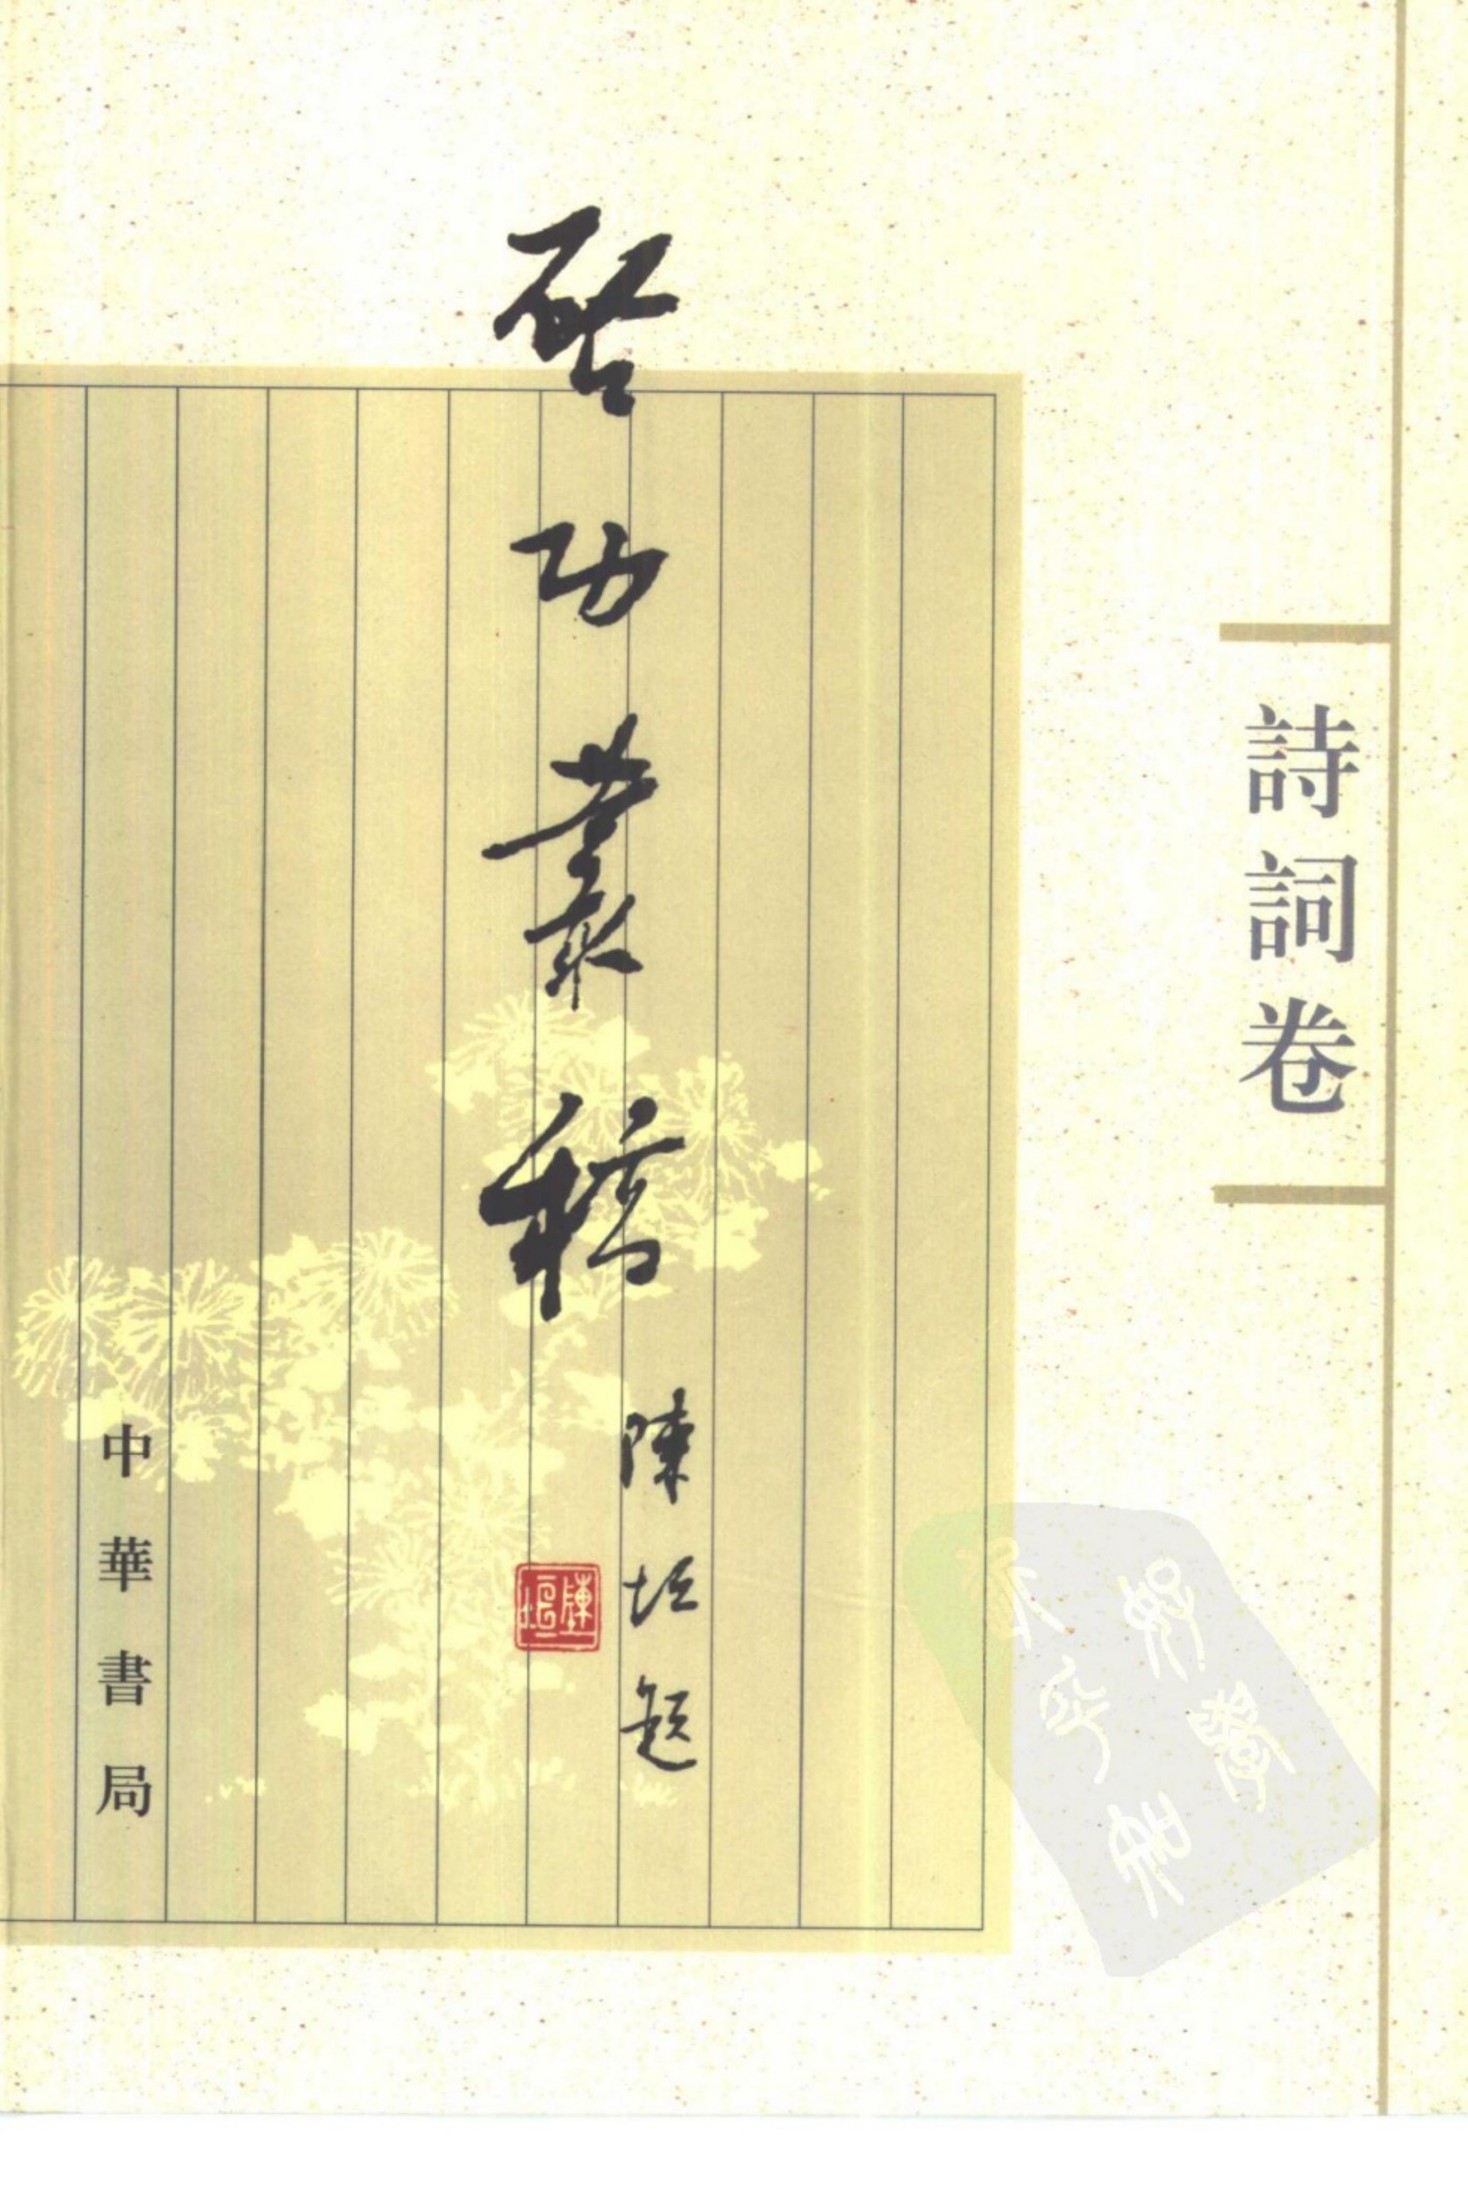 詩詞卷
啟功叢稿
陳垣題
陳垣
中華書局